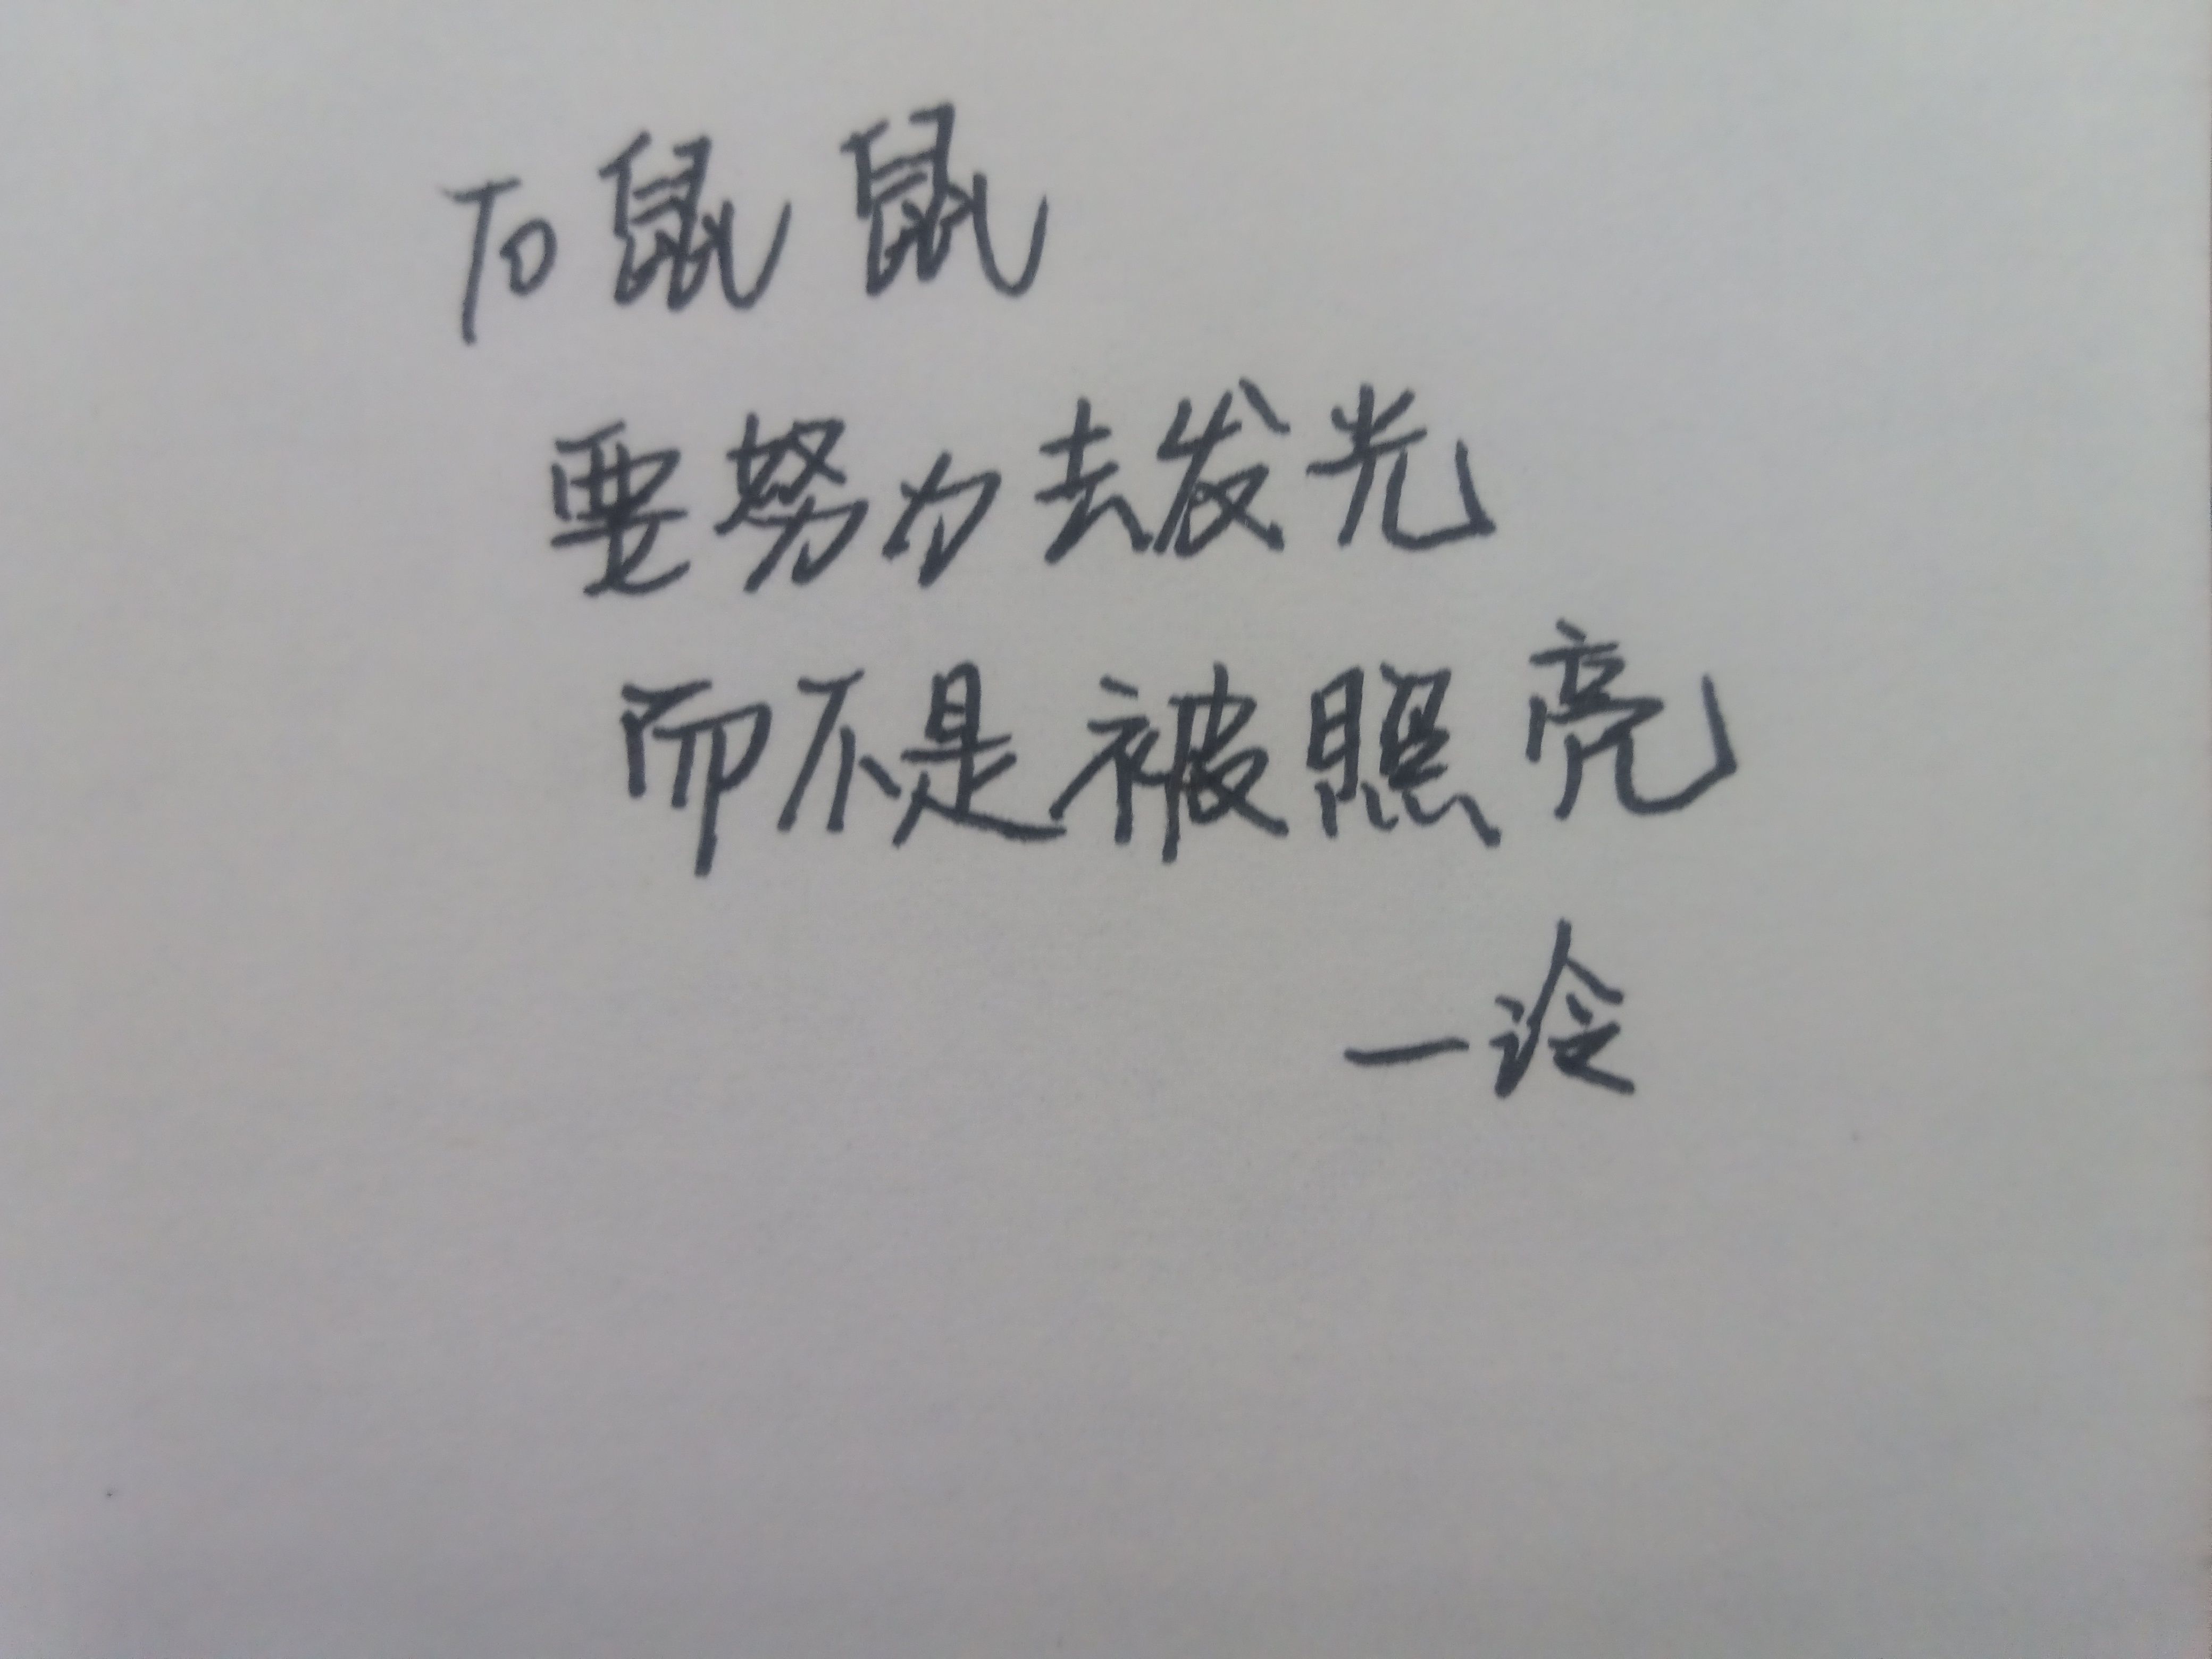 To 鼠鼠
要努力去发光
而不是被照亮
一泠